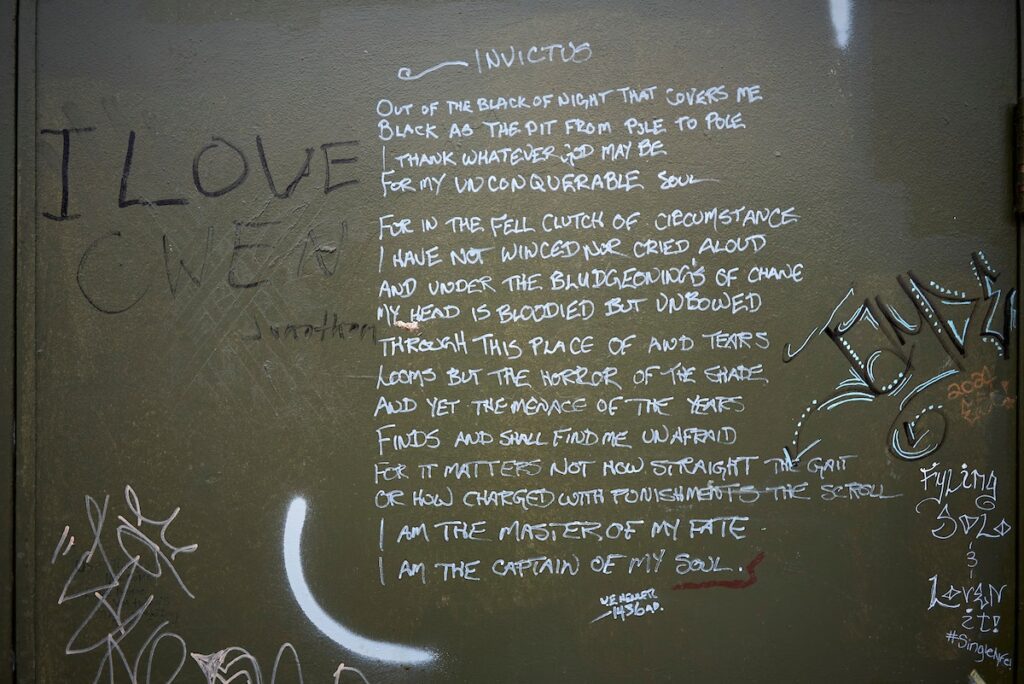 INVICTUS
OUT OF THE BLACK OF NIGHT THAT COVERS ME
BLACK AS THE PIT FROM POLE TO POLE
I THANK WHATEVER GOD MAY BE
FOR MY UNCONQUERABLE SOUL
FOR IN THE FELL CLUTCH OF CIRCUMSTANCE
I HAVE NOT WINCED NOR CRIED ALOUD
AND UNDER THE BLUDGEONING'S OF CHANE
MY HEAD IS BLOODIED BUT UNBOWED
THROUGH THIS PLACE OF AND TEARS
LOOMS BUT THE HORROR OF THE SHADE
AND YET THE MENACE OF THE YEARS
FINDS AND SHALL FIND ME UNAFRAID
FOR IT MATTERS NOT HOW STRAIGHT THE GAIT
OR HOW CHARGED WITH PUNISHMENTS THE SCROLL
I AM THE MASTER OF MY FATE
I AM THE CAPTAIN OF MY SOUL.
1436 AD.
I LOVE
CWEN
Jonathan
2024
Fyling
Solo
&
Loven
it!
#Singlelife!